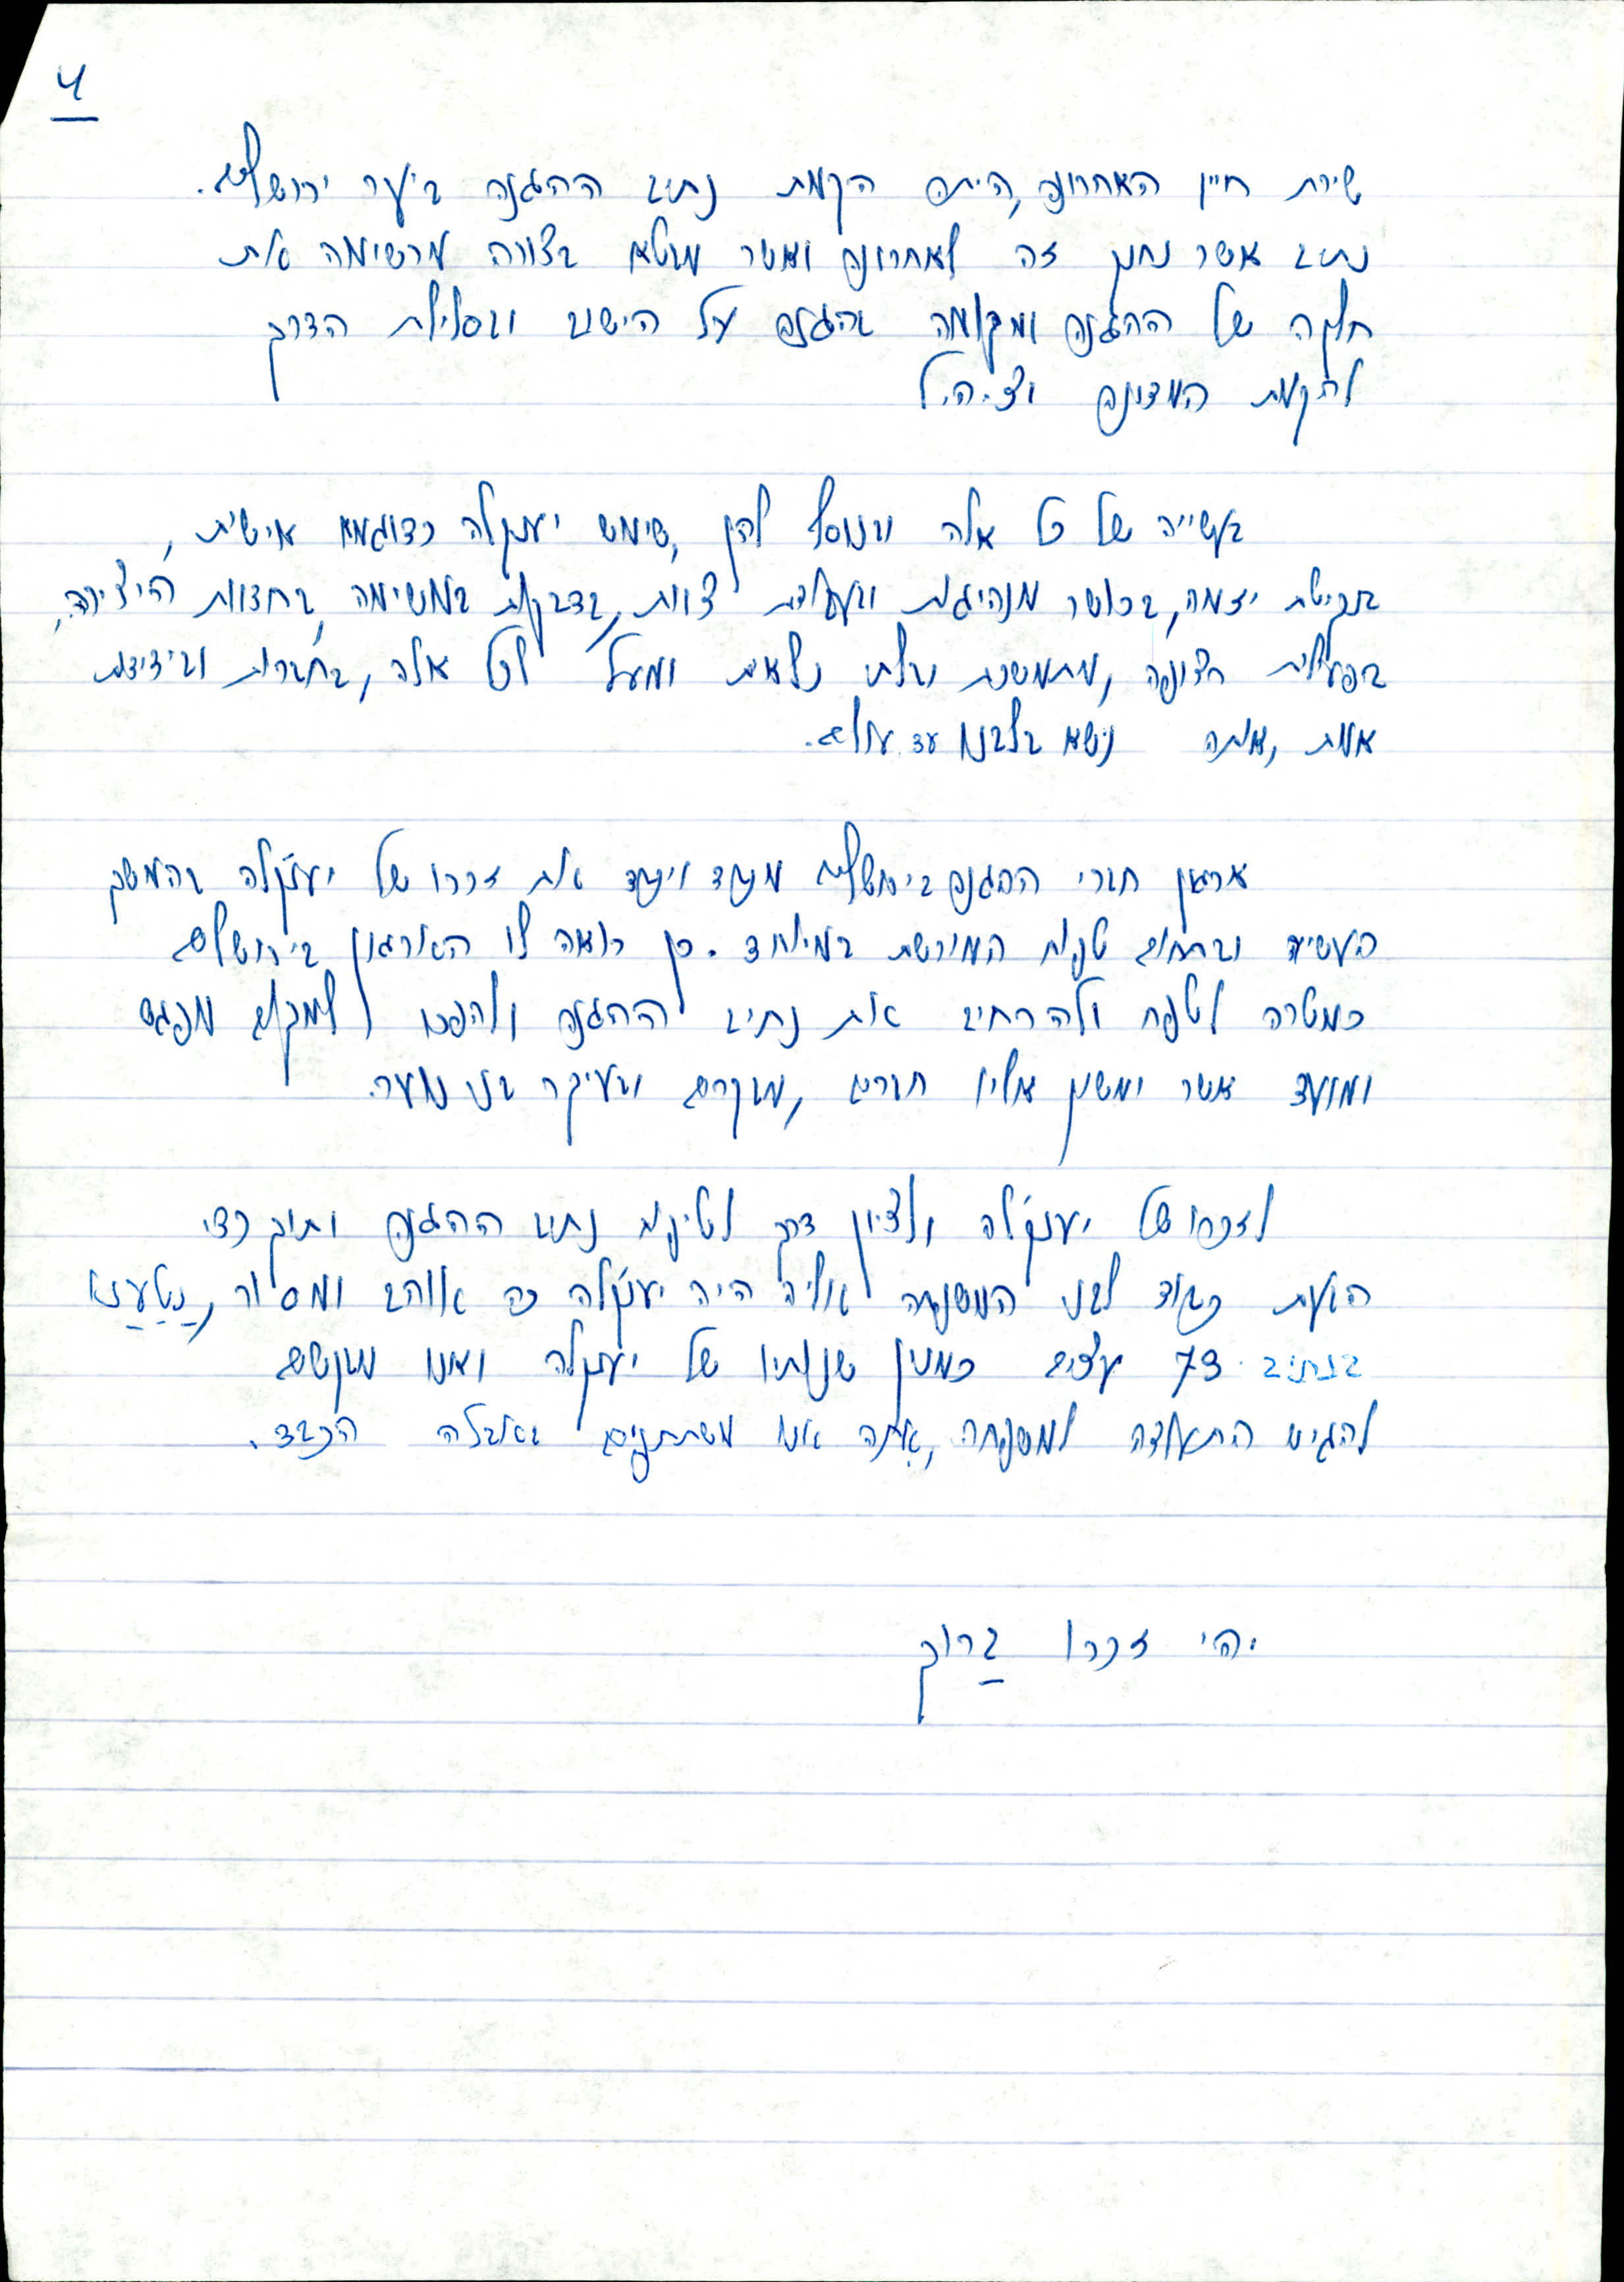 4
שירת חייו האחרונה, היתה הקמת נתיב ההגנה ביער ירושלים.
נתיב אשר נחנך זה לאחרונה ואשר מבטא בצורה מרשימה את
חלקה של ההגנה ומקומה בהגנה על הישוב ובסלילת הדרך
להקמת המדינה וצ.ה.ל
בעשייה של כל אלה ובנוסף להן, שימש יענקלה כדוגמא אישית,
בנקיטת יוזמה, בכושר מנהיגות ובעבודת צוות, בדבקות במשימה, בחדוות היצירה,
בפעילות חדורה, מתמשכת ובלתי נלאית ומעל לכל אלה, בחברות ובידידות
אמת, אותה נישא בלבנו עד עולם.
ארגון חברי ההגנה בירושלים מוקיר ויוקיר את זכרו של יענק'לה בהמשך
העשיה ובתחום טיפוח המורשת במיוחד. כן רואה לו הארגון בירושלים
כמטרה לטפח ולהרחיב את נתיב ההגנה ולהפכו למקום מפגש
ומועד אשר ימשוך אליו חברים, מבקרים ובעיקר בני נוער.
לזכרו של יענק'לה ולציון דרך לטיפוח נתיב ההגנה ותוך כדי
הבעת כבוד לבני המשפחה אליה היה יענק'לה כה אוהב ומסור, נָטַעְנוּ
בנתיב 73 עצים כמנין שנותיו של יענקלה ואנו מבקשים
להגיש התעודה למשפחה, אִתה אנו משתתפים באבלה הכבד.
יהי זכרו ברוך